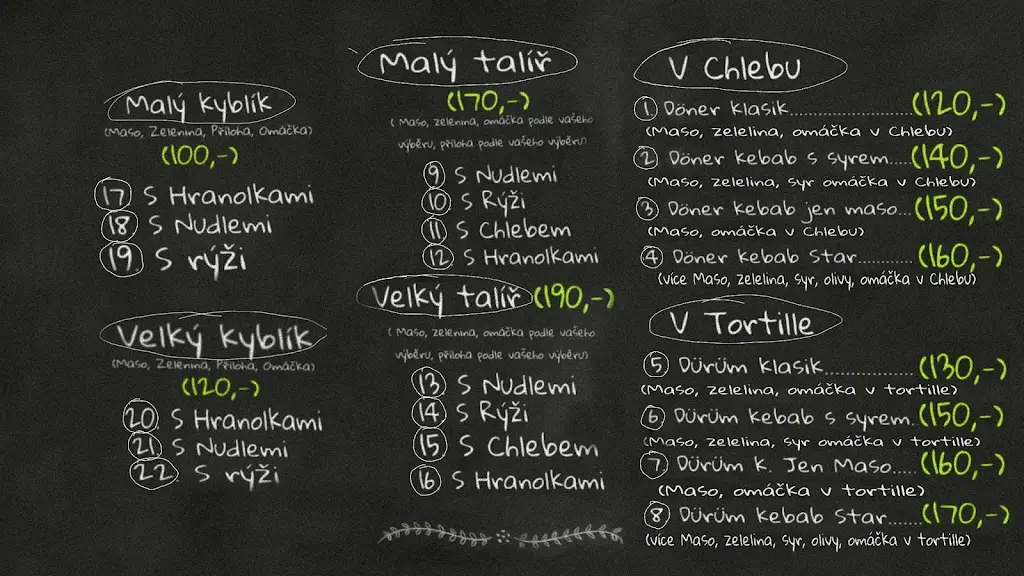 Malý kyblík
(Maso, Zelenina, Příloha, Omáčka)
(100,-)
17 S Hranolkami
18 S Nudlemi
19 S rýži
Velký kyblík
(Maso, Zelenina, Příloha, Omáčka)
(120,-)
20 S Hranolkami
21 S Nudlemi
22 S rýži
Malý talíř
(170,-)
( Maso, zelenina, omáčka podle vašeho
výběru, příloha podle vašeho výběru)
9 S Nudlemi
10 S Rýži
11 S Chlebem
12 S Hranolkami
Velký talíř (190,-)
( Maso, zelenina, omáčka podle vašeho
výběru, příloha podle vašeho výběru)
13 S Nudlemi
14 S Rýži
15 S Chlebem
16 S Hranolkami
V Chlebu
1 Döner klasik......................(120,-)
(Maso, zelelina, omáčka v Chlebu)
2 Döner kebab s syrem.....(140,-)
(Maso, zelelina, syr omáčka v Chlebu)
3 Döner kebab jen maso...(150,-)
(Maso, omáčka v Chlebu)
4 Döner kebab Star...........(160,-)
(více Maso, zelelina, syr, olivy, omáčka v Chlebu)
V Tortille
5 Dürüm klasik................(130,-)
(Maso, zelelina, omáčka v tortille)
6 Dürüm kebab s syrem.(150,-)
(Maso, zelelina, syr omáčka v tortille)
7 Dürüm k. Jen Maso.....(160,-)
(Maso, omáčka v tortille)
8 Dürüm kebab Star.......(170,-)
(více Maso, zelelina, syr, olivy, omáčka v tortille)